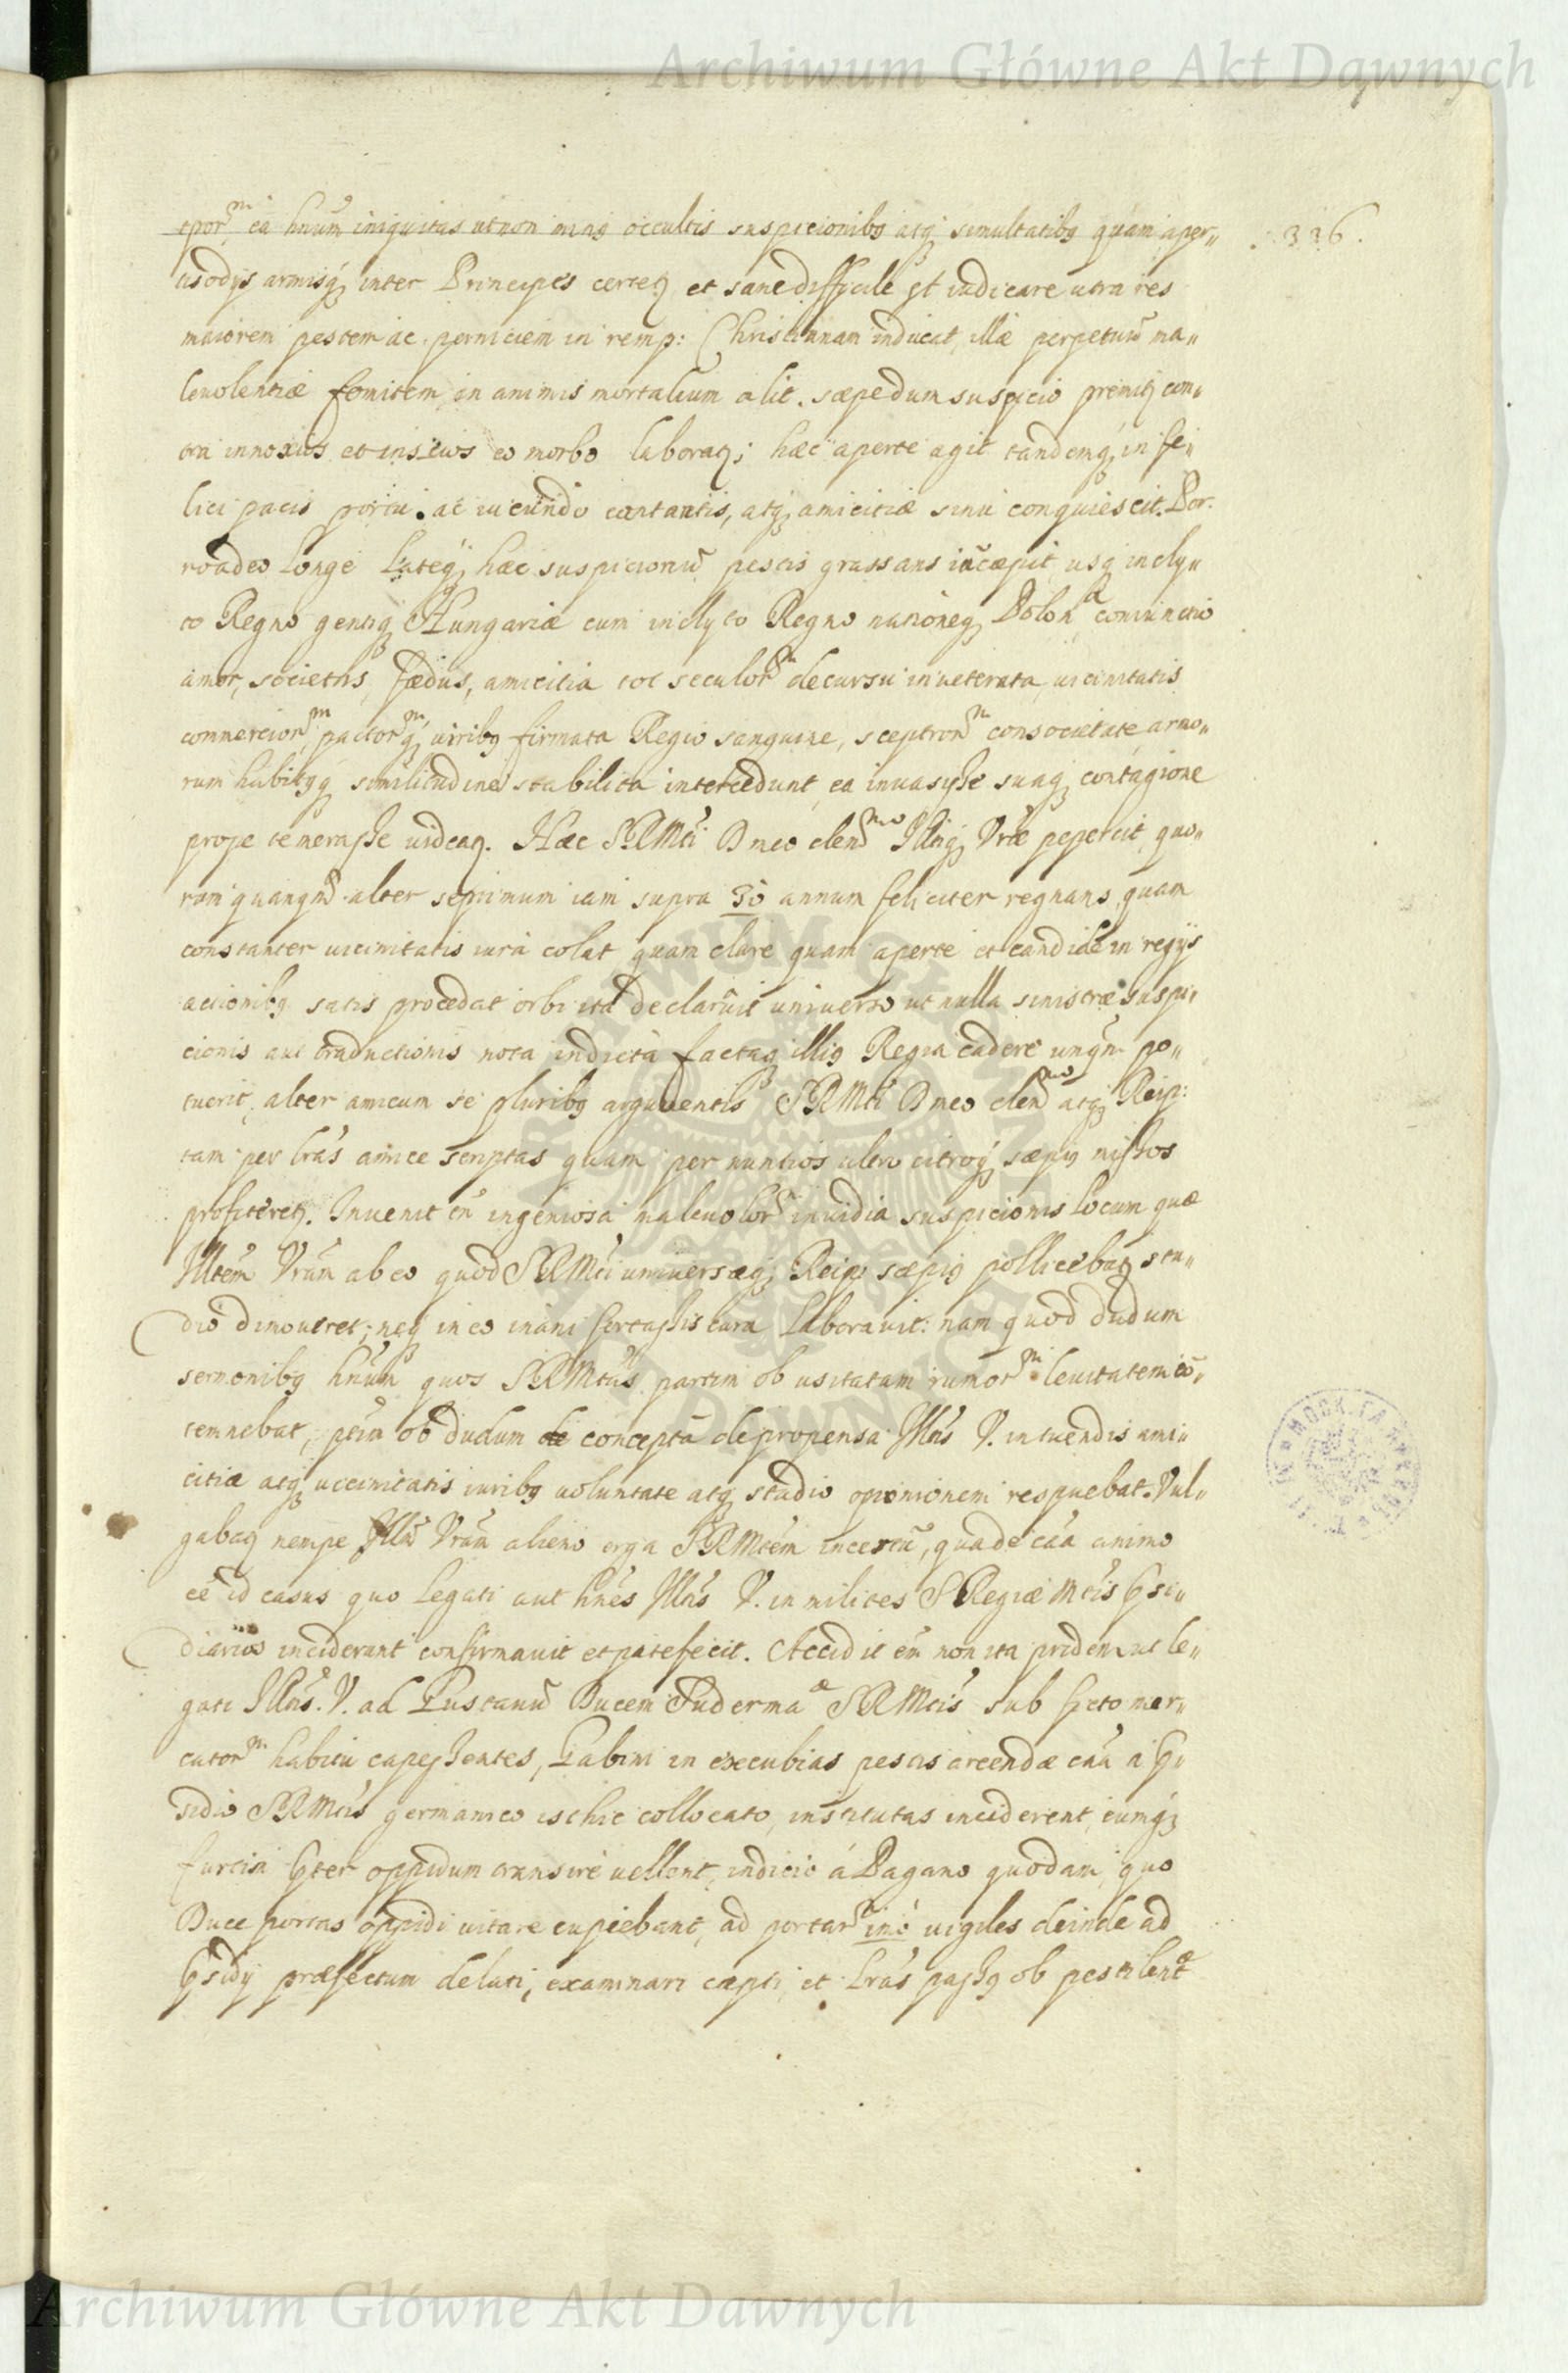 Archiwum Główne Akt Dawnych
tpor^m, ea hnũm iniquitas ut non ming occultis suspicionibg atq; simultatibg quam aper„
336.
tis odijs armisq; inter Principes certeʒ et sane difficile ẽt iudicare utra res
maiorem pestem ac perniciem in remp: Christianam inducat, illæ perpetuũ ma„
leuolentiæ fomitem in animis mortalium alit. sæpe dum suspicio premitʒ con„
tra innoxios et inscios eo morbo laboraʒ; hæc aperte agit tandemq; in fe„
lici pacis portu. ac iucundo cantantis, atq; amicitiæ sinu conquiescit. Por:
ro adeo longe lateq; hæc suspicionũ pestis grassans incæpit, usq; incly„
to Regno gentiq; Hungariæ cum inclyto Regno nationeq; Polon^æ coniunctio
amor, societas, fædus, amicitia tot seculor^m decursu inueterata, uicinitatis
commercior^m, pactor^mq; uiribg firmata Regio sanguine, sceptror^m consocietate, armo„
rum habitgq; similitudine stabilita intercedunt, ea inuasisse suaq; contagione
prope temerasse uideaʒ. Hæc SRMti Dneo clen^mo Illriq; Vræ pepercit, quo„
rum quanqm̃ alter septimum iam supra 30 annum feliciter regnans, quam
constanter uicinitatis iura colat quam clare quam aperte et candide in regijs
actionibg satis procedat orbi ita declaruit uniuerso ut nulla sinistræ suspi„
cionis aut traductionis nota indicta factaq; illig Regia cadere unqm̃ po„
tuerit, alter amicum se pluribg argumentis SRMti Dneo clen^mo atq; Reip:
tam per lrãs amice scriptas quam per nuntios ultro citroq; sæpig missos
profitereʒ. Inuenit en̄ ingeniosa maleuolor^m inuidia suspicionis locum quæ
Illtem̃ Vram̃ ab eo quod SRMti uniuersæq; Reip: sæpig pollicebaʒ stu„
dio dimoueret; neq; in eo inani fortassis cura laborauit: nam quod dudum
sermonibg hnũm quos SRMtas partim ob usitatam rumor^m leuitatem cõ„
temnebat, ptim ob dudum de concepta de propensa Illris V. in tuendis ami„
citiæ atq; uicinitatis iuribg uoluntate atq; studio opinionem respuebat. Vul„
gabaʒ nempe Illm̃ Vram̃ alieno erga SRMtem incertũ, qua de cãa animo
ẽe id casus quo legati aut hñes Illris V. in milites S Regiæ Mtis Pſi„
diarios inciderunt confirmauit et patefecit. Accidit en̄ non ita pridem ut le„
gati Illris. V. ad Pustanũ Ducem Tuderma^æ SRMtis sub ficto mer„
cator^m habitu capessentes, Labini in excubias pestis arcendæ cãa a P„
sidio SRMtis germanico isthic collocato, institutas inciderent, eumq;
furtim Pter oppidum transire uellent, indicio à Pagano quodam, quo
Duce portas oppidi uitare cupiebant, ad portar^m imo uigiles deinde ad
Psidij præfectum delati, examinari cæpti, et lrãs passg ob pestilent^æ
Archiwum Główne Akt Dawnych